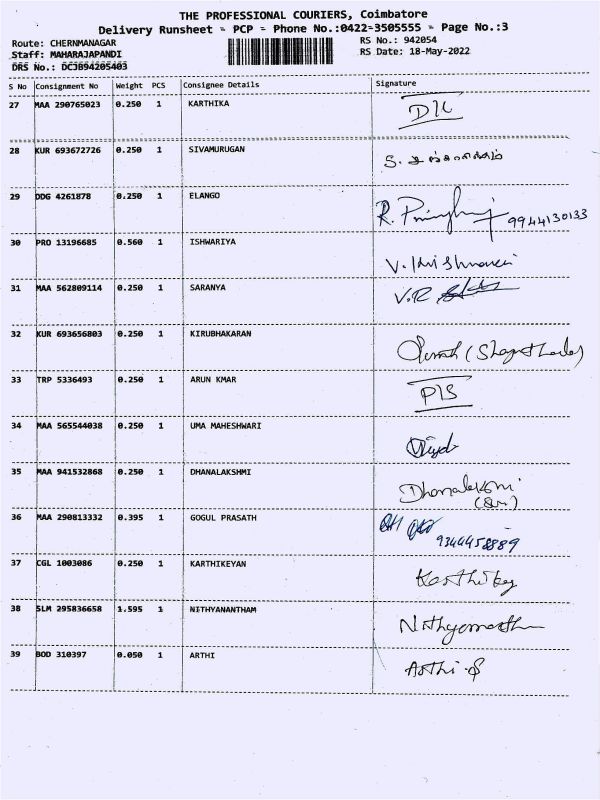 THE PROFESSIONAL COURIERS, Coimbatore
Delivery Runsheet - PCP - Phone No.:0422-3505555 - Page No.:3
Route: CHERNMANAGAR RS No.: 942054
Staff: MAHARAJAPANDI RS Date: 18-May-2022
DRS No.: DCJB94205403
S No Consignment No Weight PCS Consignee Details Signature
27 MAA 290765023 0.250 1 KARTHIKA
28 KUR 693672726 0.250 1 SIVAMURUGAN
29 DDG 4261878 0.250 1 ELANGO 9944130133
30 PRO 13196685 0.560 1 ISHWARIYA
31 MAA 562809114 0.250 1 SARANYA V.R
32 KUR 693656803 0.250 1 KIRUBHAKARAN
33 TRP 5336493 0.250 1 ARUN KMAR
34 MAA 565544038 0.250 1 UMA MAHESHWARI
35 MAA 941532868 0.250 1 DHANALAKSHMI
36 MAA 290813332 0.395 1 GOGUL PRASATH 9344458889
37 CGL 1003086 0.250 1 KARTHIKEYAN
38 SLM 295836658 1.595 1 NITHYANANTHAM
39 BOD 310397 0.050 1 ARTHI